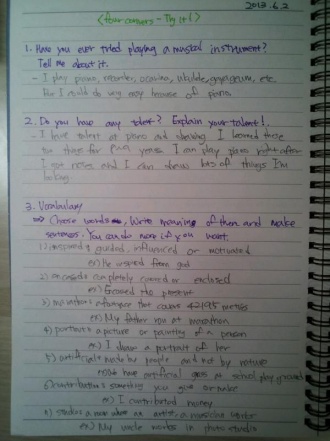 2013.6.2
<four corners - Try it!>
1. Have you ever tried playing a musical instrument?
Tell me about it.
- I play piano, recorder, ocarina, ukulele, gayageum, etc.
But I could do very easy because of piano.
2. Do you have any talent? Explain your talent!
- I have talent at piano and drawing. I learned these
two things for years. I can play piano right after
I got notes and I can draw lots of things I'm
looking.
3. Vocabulary
⇒ Choose words. Write meaning of them and make
sentences. You can do more if you want.
1) inspired: guided, influenced or motivated
ex) He inspired from god
2) encased: completely covered or enclosed
ex) I encased the present
3) marathon: a footrace that covers 42.195 metres
ex) My father ran at marathon
4) portrait: a picture or painting of a person
ex) I draw a portrait of her
5) artificial: made by people and not by nature
ex) We have artificial grass at school playground
6) contribution: something you give or make
ex) I contributed money
studio: a room where an artist, a musician works
ex) My uncle works in photo studio